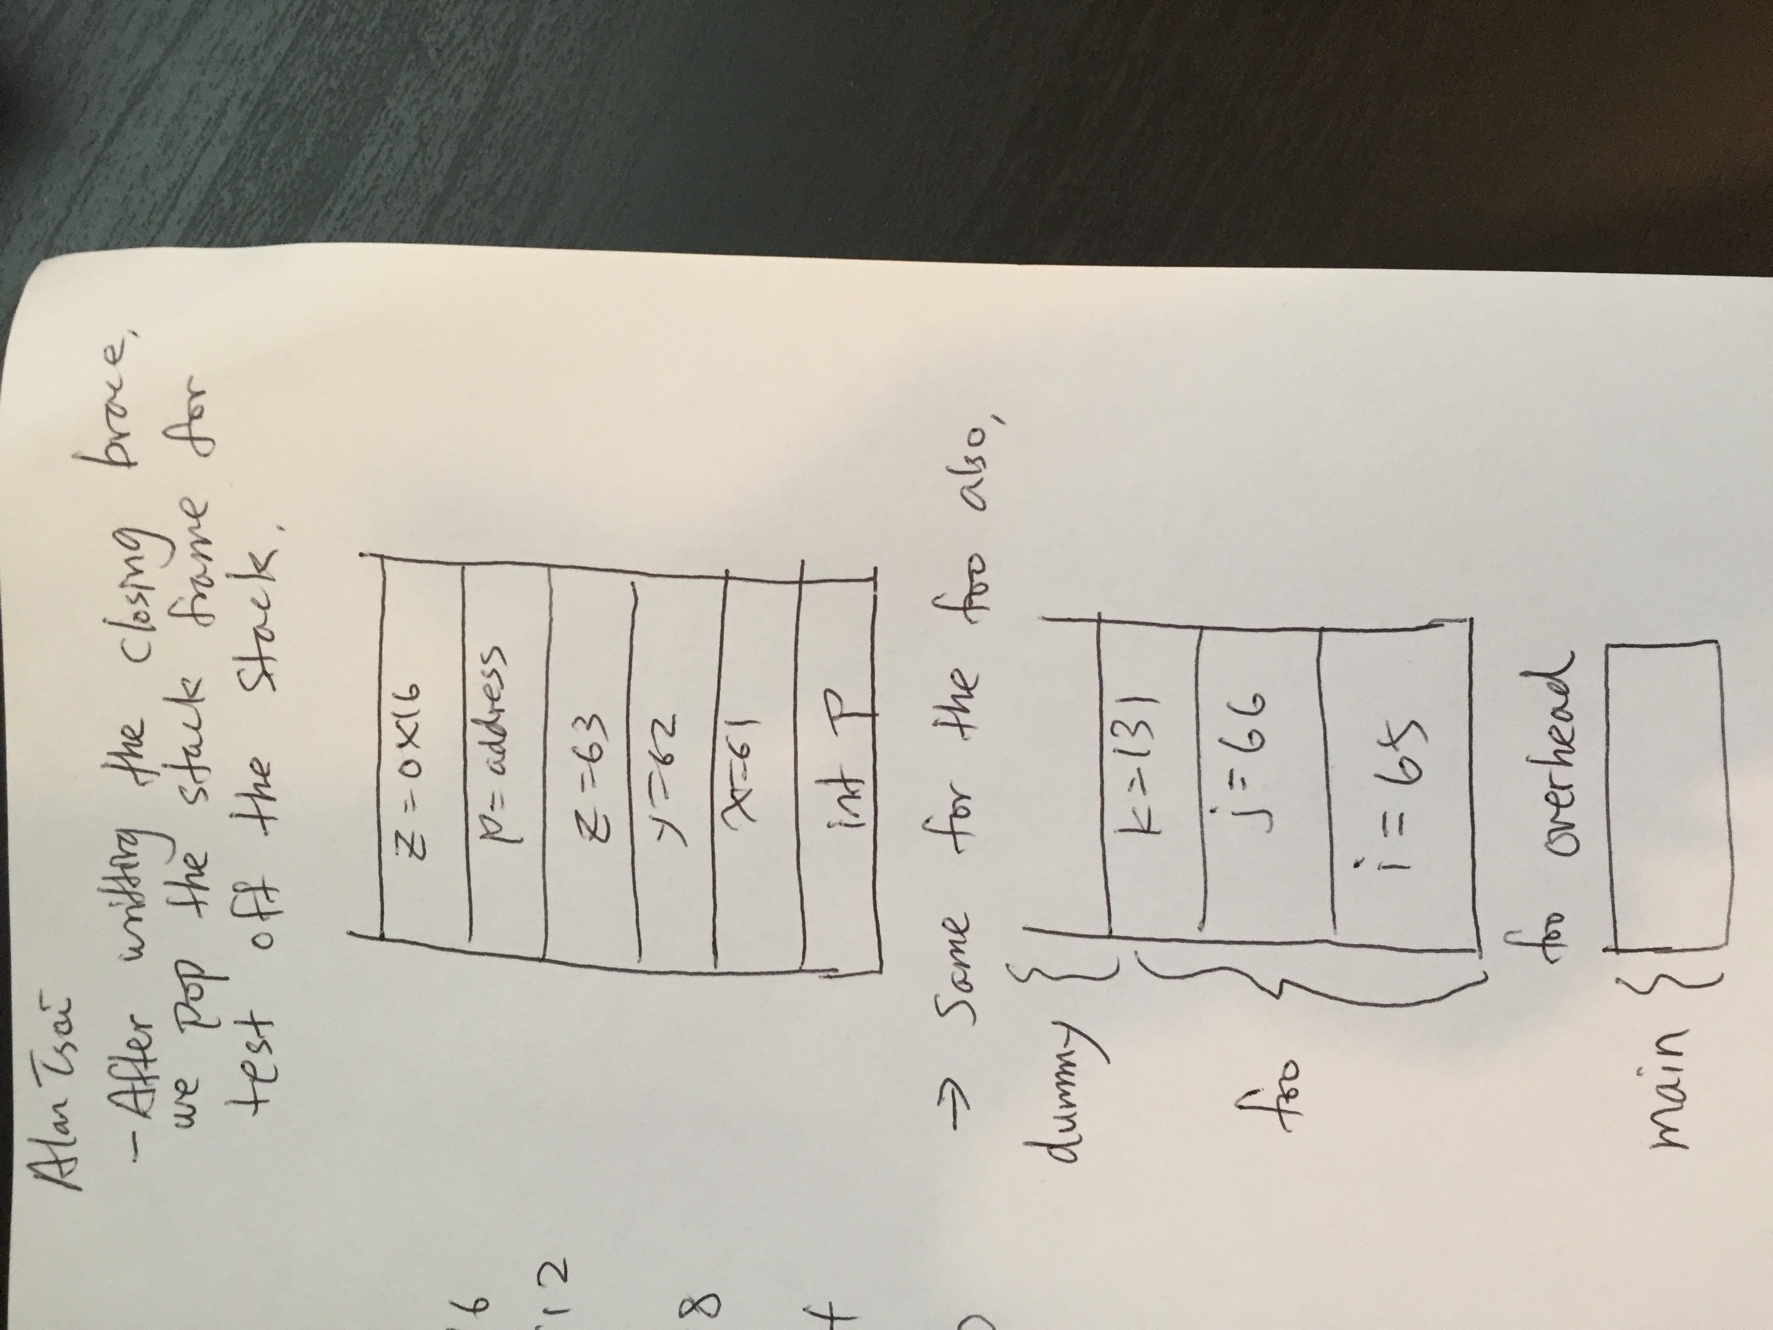 Alan Tsai
- After writing the closing brace,
we pop the stack frame for
test off the stack.
z = 0x16
p = address
z = 63
y = 62
x = 61
int P
16
12
8
4
0
→ Same for the foo also,
dummy {
k = 131
foo {
j = 66
i = 65
foo overhead
main {